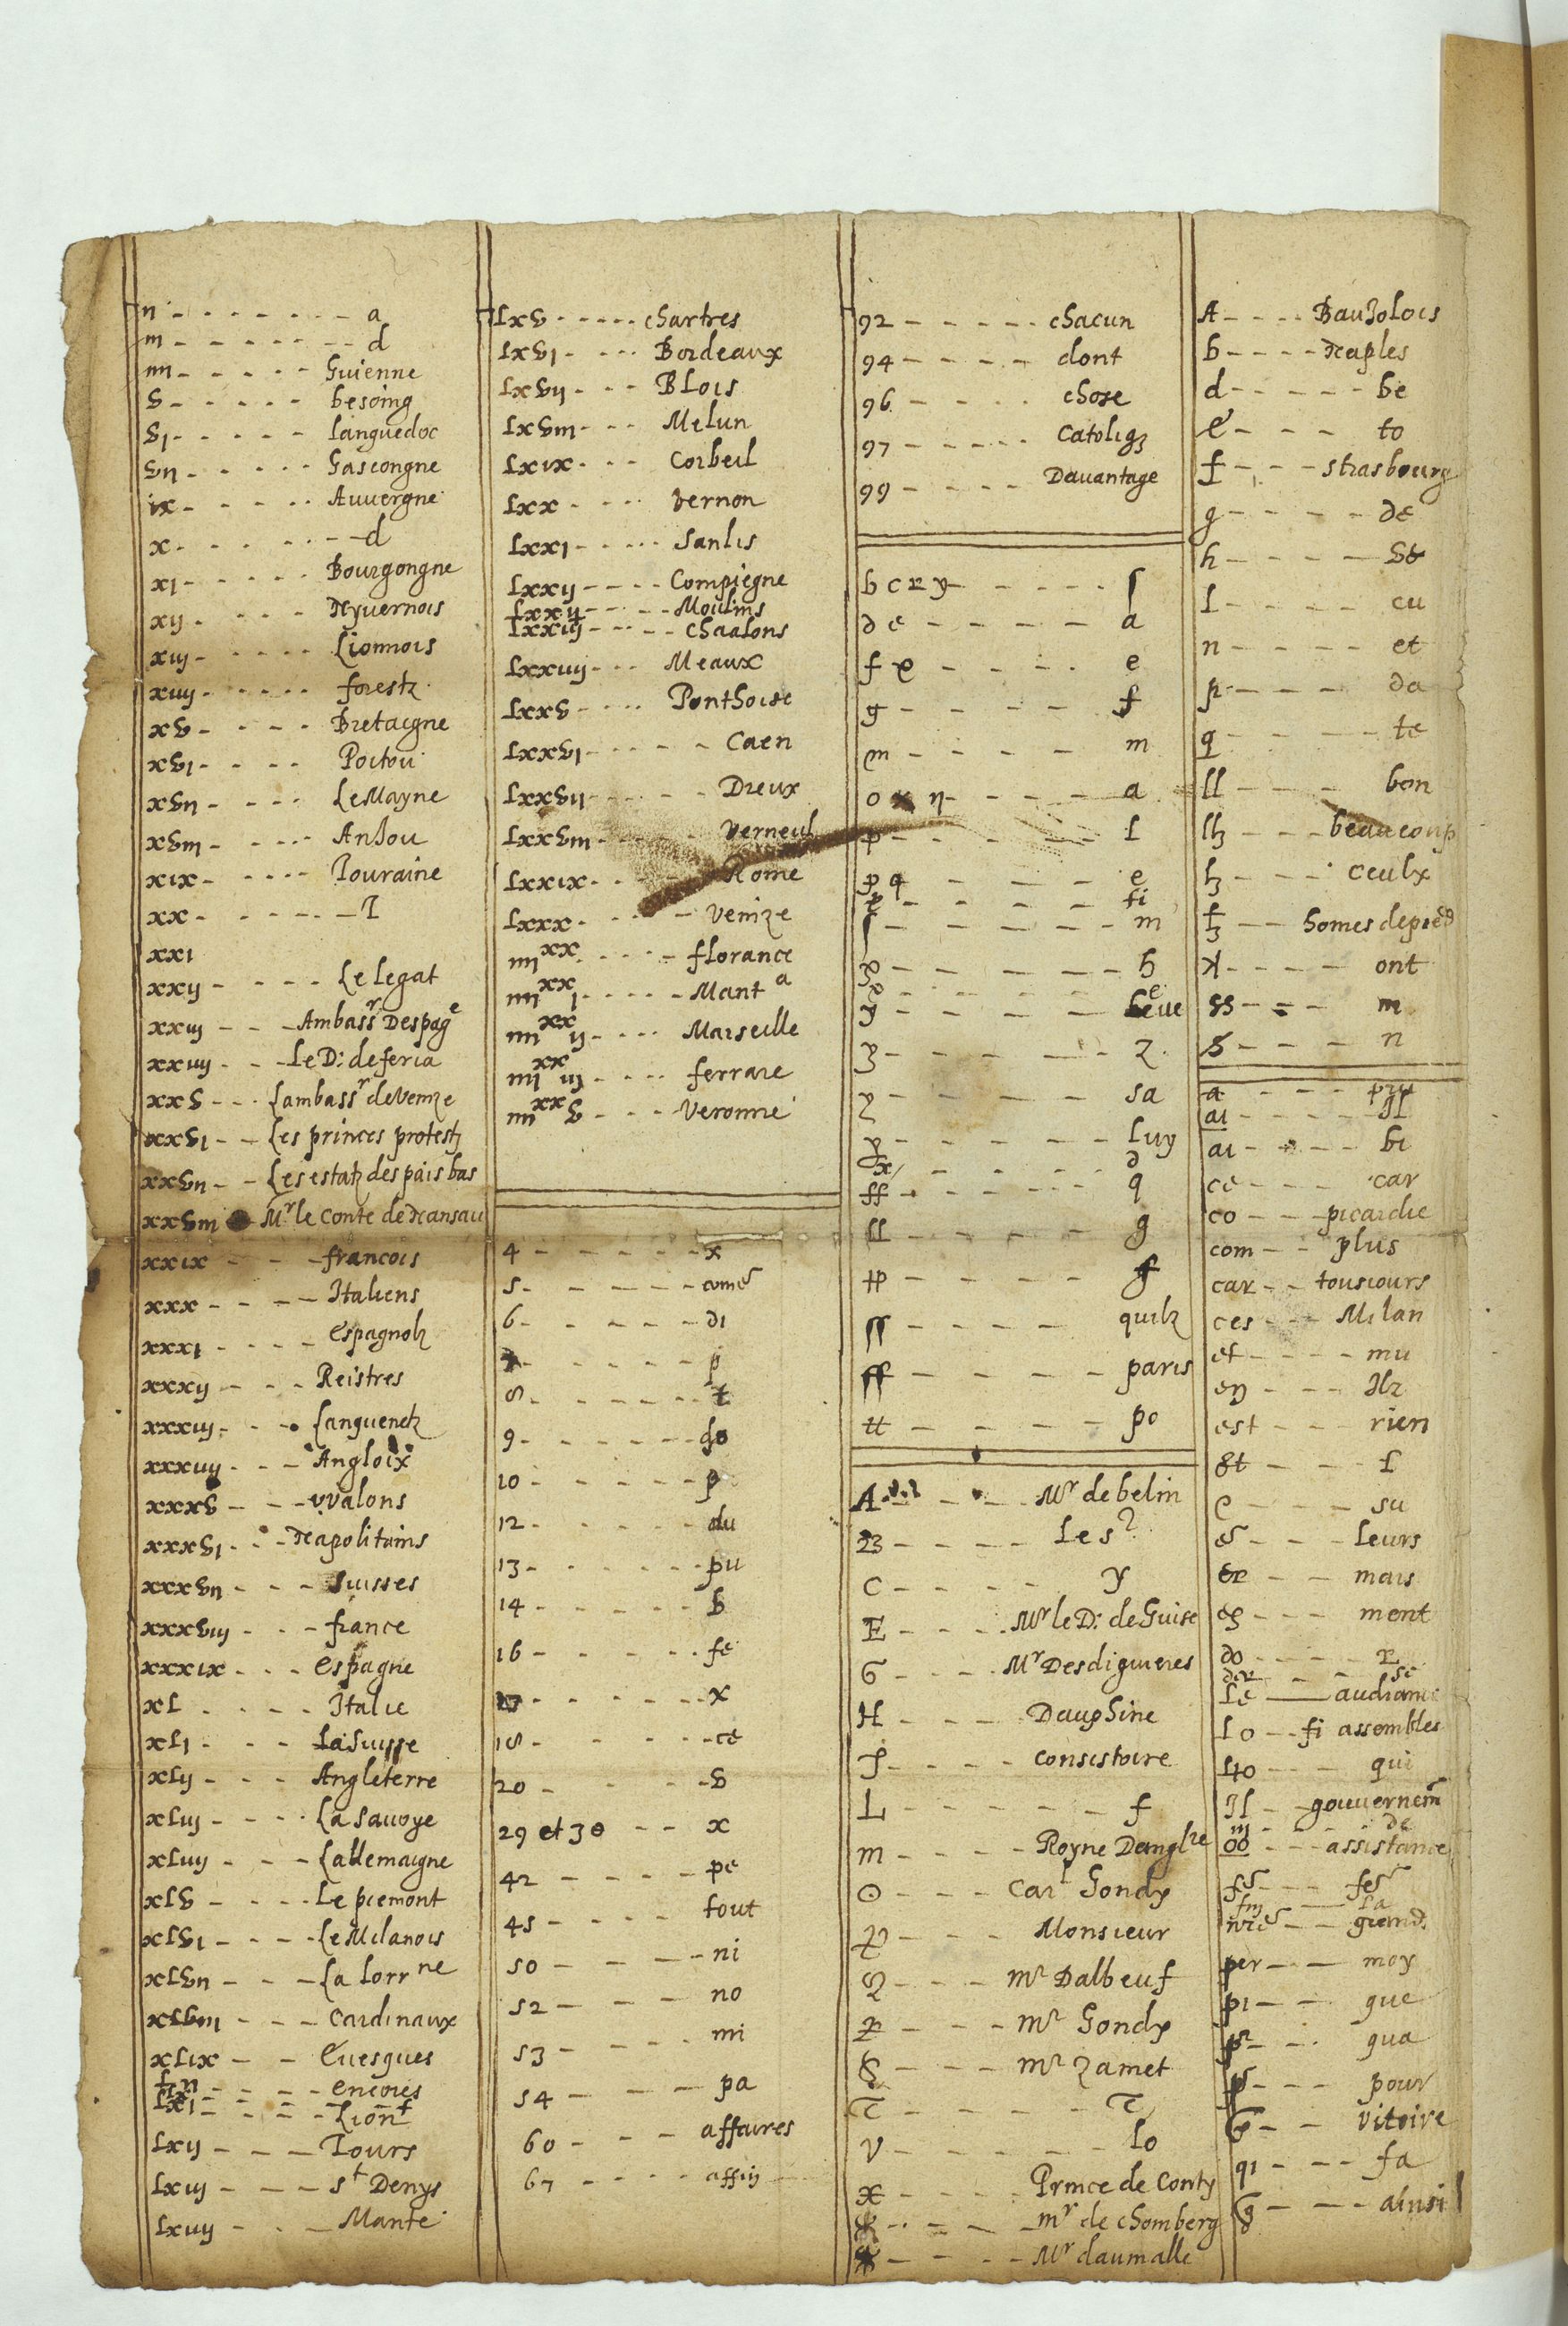 n - - - - - - - a
m - - - - - - - d
mi - - - - - Guienne
v - - - - - besoing
vi - - - - - Languedoc
vii - - - - - Gascongne
ix - - - - - Auuergne
x - - - - - - d
xi - - - - - Bourgongne
xij - - - - Nyuernois
xiij - - - - Lionnois
xiiij - - - - forestz
xv - - - - Bretaigne
xvi - - - - Poitou
xvii - - - - Le Mayne
xviii - - - - Aniou
xix - - - - Touraine
xx - - - - - T
xxi
xxij - - - - Le Legat
xxiij - - - Ambassr Despage
xxiiij - - - Le D: de feria
xxv - - - Lambassr de Venize
xxvi - - Les princes protestz
xxvii - - Les estatz des païs bas
xxviii - Mr le Conte de Nansau
xxix - - - francois
xxx - - - - Italiens
xxxi - - - - Espagnolz
xxxij - - - Reistres
xxxiij - - - Lanquenetz
xxxiiij - - - Angloix
xxxv - - - vvalons
xxxvi - - - Neapolitains
xxxvii - - - Suisses
xxxviii - - - france
xxxix - - - Espagne
xl - - - - Italie
xli - - - La Suisse
xlij - - - Angleterre
xliij - - - - La Sauoye
xliiij - - - Lallemaigne
xlv - - - - Le piemont
xlvi - - - - Le Milanois
xlvii - - - La Lorrne
xlviii - - - Cardinaux
xlix - - Euesques
- - - - encores
lxi - - - - Lion
lxij - - - Tours
lxiij - - - St Denys
lxiiij - - - Mante
lxv - - - - - chartres
lxvi - - - - Bordeaux
lxvij - - - Blois
lxviii - - - Melun
lxix - - - Corbeil
lxx - - - - Vernon
lxxi - - - - Sanlis
lxxij - - - - Compiegne
- - - - - Moulins
lxxiij - - - - - Chaalons
lxxiiij - - - Meaux
lxxv - - - - Ponthoise
lxxvi - - - - - Caen
lxxvij - - - - - Dreux
lxxviii - - - - Verneul
lxxix - - - - - Rome
lxxx - - - - - Venize
iiiixx - - - - - florance
iiiixx i - - - - - Manta
iiiixx ij - - - - Marseille
iiiixx iij - - - - ferrare
iiiixx v - - - - Veronne
4 - - - - - - x
5 - - - - - - come
6 - - - - - - di
7 - - - - - - p
8 - - - - - - t
9 - - - - - - do
10 - - - - - - p
12 - - - - - - du
13 - - - - - - pu
14 - - - - - - b
16 - - - - - - fe
17 - - - - - - x
18 - - - - - - ce
20 - - - - - - v
29 et 30 - - x
42 - - - - pe
45 - - - - tout
50 - - - - ni
52 - - - - no
53 - - - - mi
54 - - - - pa
60 - - - affaires
67 - - - - affin
92 - - - - - chacun
94 - - - - dont
96 - - - - chose
97 - - - - - Catoliqz
99 - - - - Dauantage
b c r y - - - - - ſ
d e - - - - - a
f e - - - - e
g - - - - - f
m - - - - m
o x n - - - - a
p - - - - - l
p q - - - - e
- - - - - fi
ſ - - - - - - m
- - - - - - h
y - - - - - - beue
z - - - - - - z
- - - - - sa
- - - - - - luy
x - - - - - d
ff - - - - - - q
ll - - - - - g
- - - - - f
ſſ - - - - quilz
ff - - - - paris
tt - - - - po
A - - - - Mr de belin
23 - - - - Les
C - - - - y
E - - - - Mr le D: de Guise
G - - - - Mr Desdiguieres
H - - - - Dauphine
J - - - - consistoire
L - - - - - - f
m - - - - Royne Danglre
⊙ - - - Carl Gondy
- - - Monsieur
- - - Mr Dalbeuf
R - - - Mr Gondy
S - - - Mr Zamet
T - - - - - T
V - - - - - - lo
X - - - - Prince de Conty
- - - - Mr de chomberg
- - - - Mr daumalle
A - - - - Bauiolois
b - - - - Naples
d - - - - - be
e - - - to
f - - - strasbourg
g - - - - de
h - - - - - St
l - - - - cu
n - - - - et
p - - - - da
q - - - - - te
ll - - - - bon
lz - - - beaucoup
- - - - ceulx
- - homes de pied
- - - - ont
ss - - - m
s - - - - n
a - - - -
ai - - - -
ai - - - - bi
ce - - - - car
co - - - picardie
com - - plus
car - - tousiours
ces - - - Milan
et - - - - mu
en - - - Ilz
est - - - rien
st - - - l
e - - - - su
es - - - leurs
er - - - mais
es - - - ment
do - - - - r
der - - - se
Le - - audiance
Lo - - fi assembles
- - - qui
Il - - gouvernem
m - - - - de
oo - - - assistance
- - - -
- - - la
- - grand
per - - - moy
pi - - - que
- - - qua
- - - pour
- - - Vitoire
qi - - - fa
- - - - ainsi